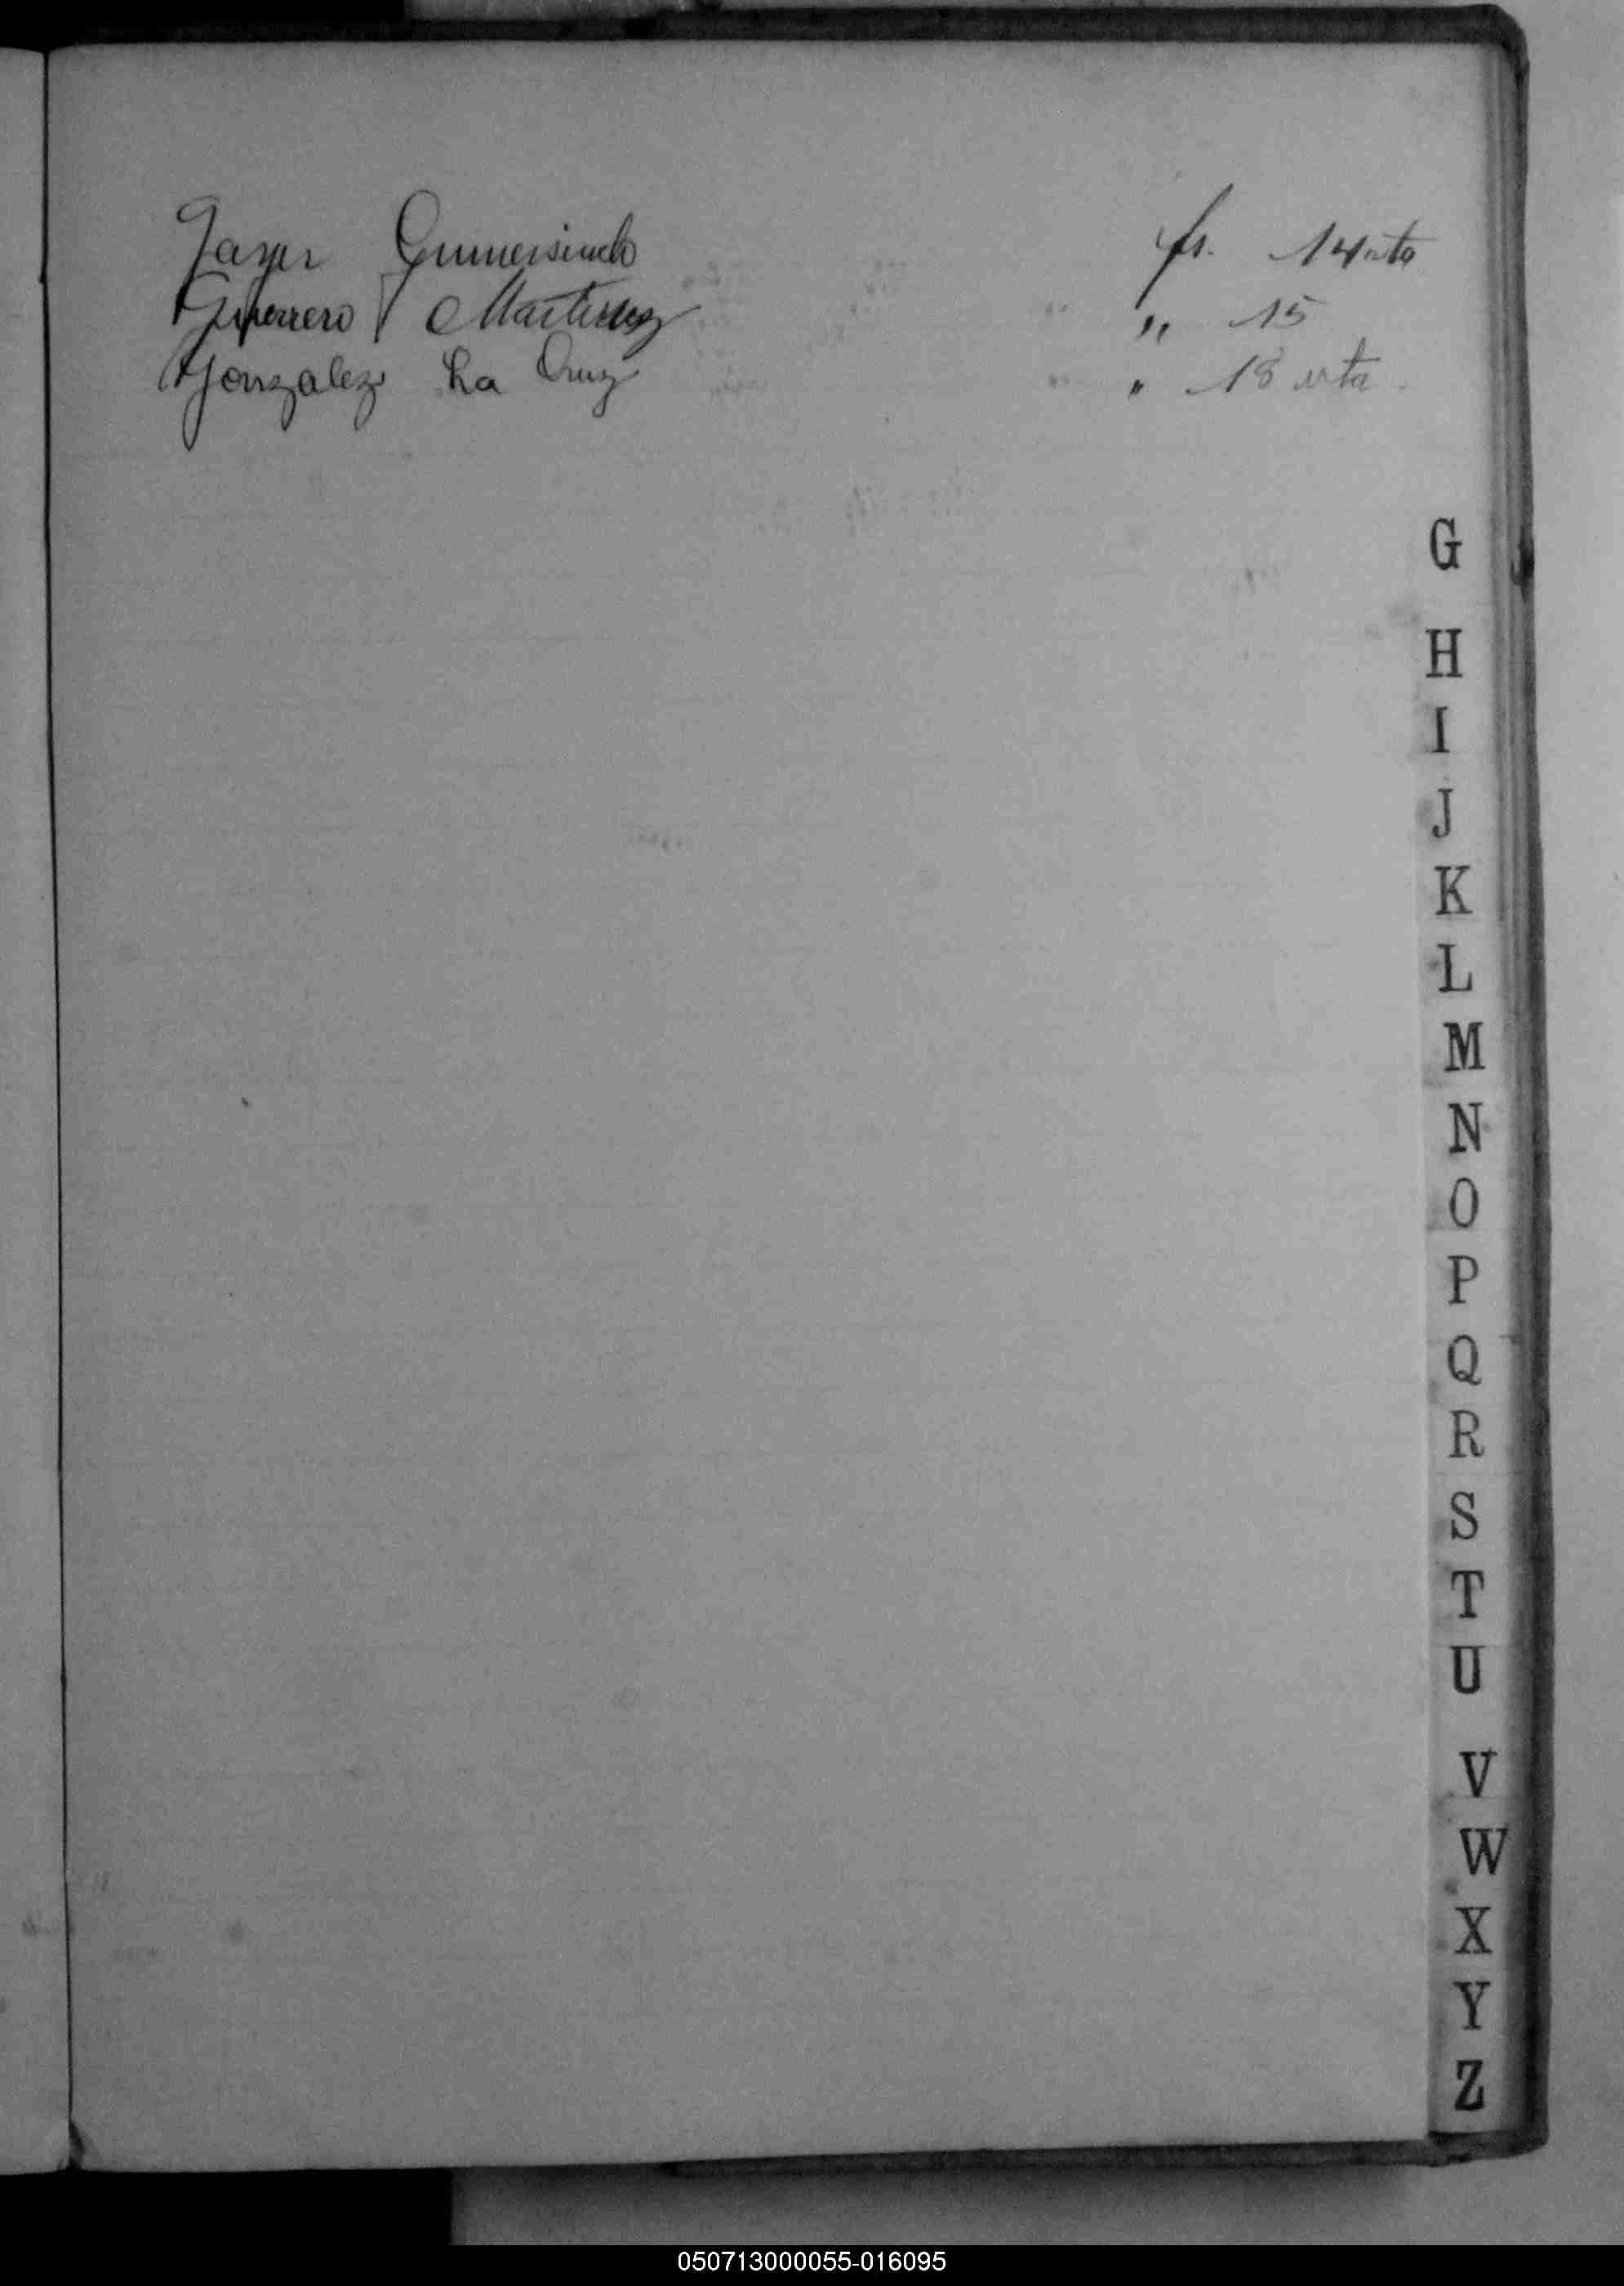 Gumersindo fs. 14 vta
Guerrero Martinez " 15
Gonzalez La Cruz " 18 vta.
G
H
I
J
K
L
M
N
O
P
Q
R
S
T
U
V
W
X
Y
Z
050713000055-016095